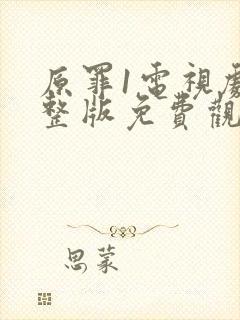 原罪1電視劇
整版免費觀
思蒙